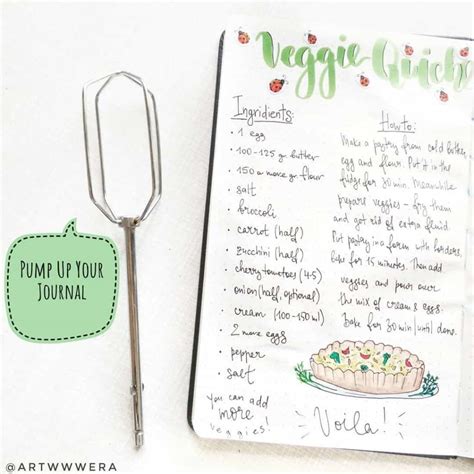 Veggie Quiche
Ingridients:
• 1 egg
• 100-125 gr butter
• 150 or more gr flour
• salt
• broccoli
• carrot (half)
• zucchini (half)
• cherry tomatoes (4-5)
• onion (half, optional)
• cream (100-150 ml)
• 2 more eggs
• pepper
• salt
you can add
more
veggies!
How to:
Make a pastry from cold butter,
egg and flour. Put it in the
fridge for 30 min. Meanwhile
prepare veggies – fry them
and get rid of extra fluid.
Put pastry in a form with borders,
bake for 15 minutes. Then add
veggies and pour over
the mix of cream & eggs.
Bake for 30 min (until done.
Voila!
PUMP UP YOUR
JOURNAL
@ARTWWWERA